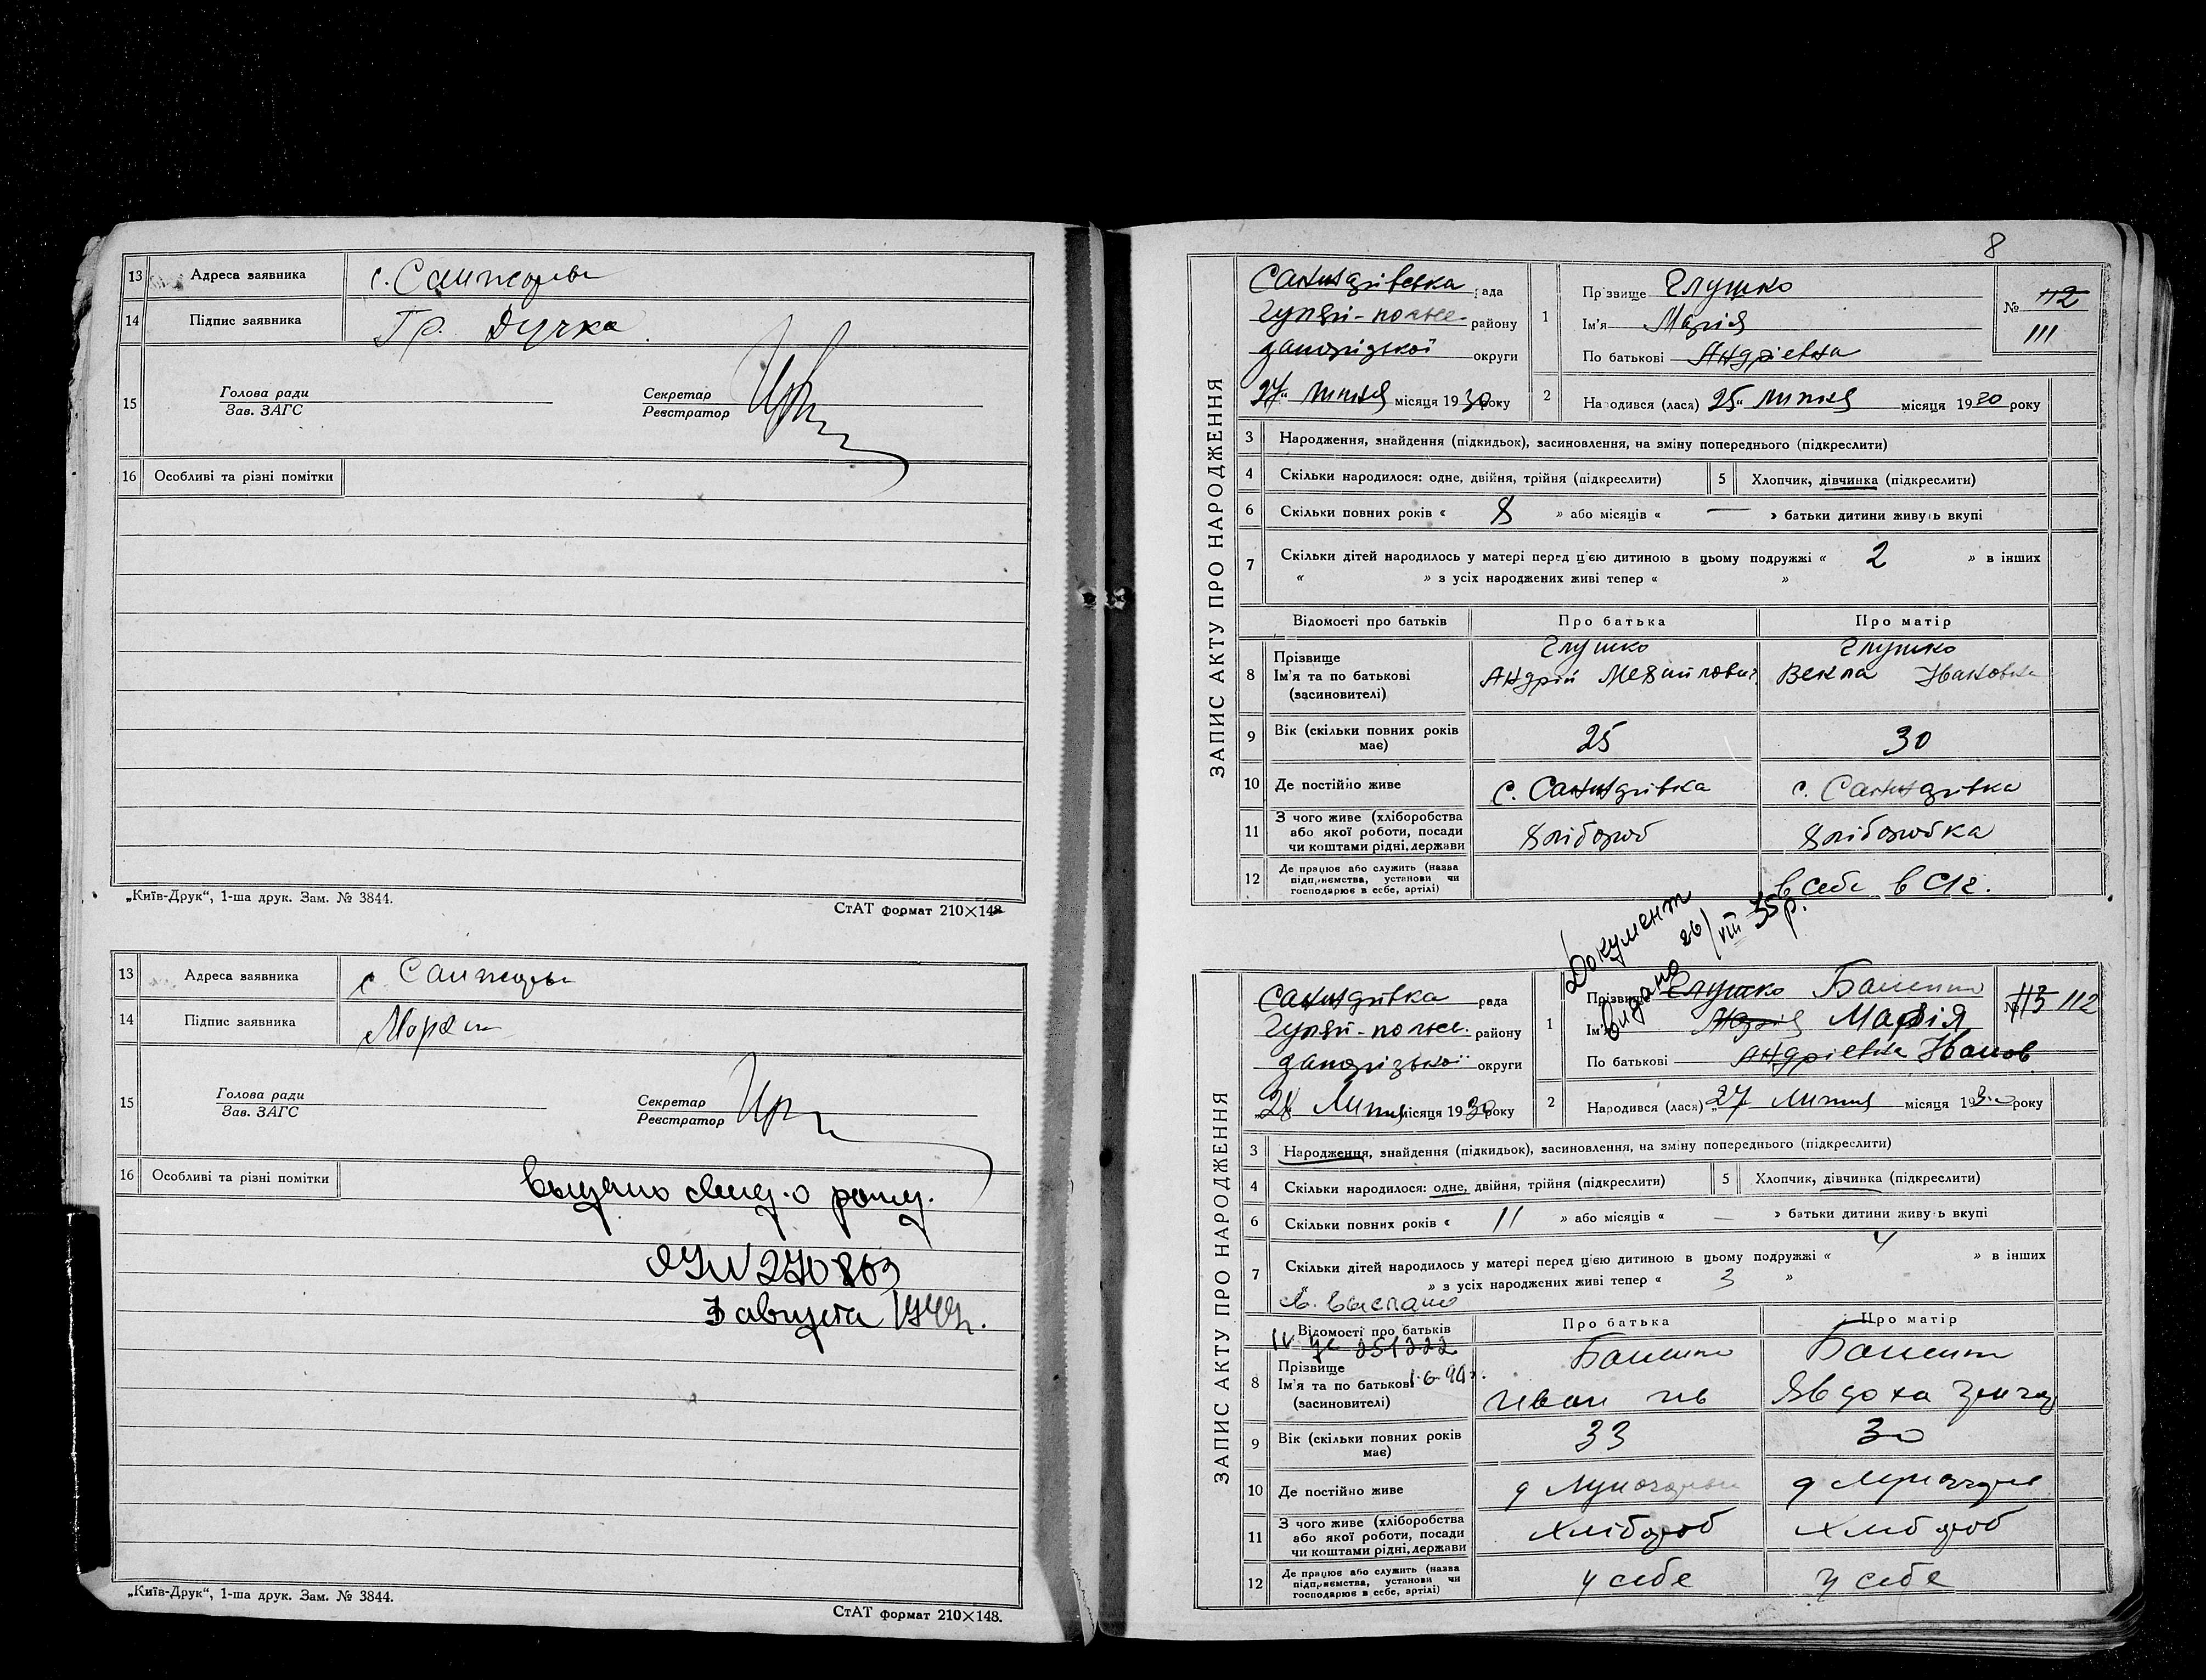 13 Адреса заявника с.
14 Підпис заявника Гр. Дучка
15 Голова ради
Зав. ЗАГС
Секретар
Реєстратор
16 Особливі та різні помітки
„Київ-Друк“, 1-ша друк. Зам. № 3844.
СтАТ формат 210×148
13 Адреса заявника с.
14 Підпис заявника
15 Голова ради
Зав. ЗАГС
Секретар
Реєстратор
16 Особливі та різні помітки
270863
3 августа 1949г.
„Київ-Друк“, 1-ша друк. Зам. № 3844.
СтАТ формат 210×148.
8
ЗАПИС АКТУ ПРО НАРОДЖЕННЯ
рада
Гуляй-польс. району
запорізької округи
27 липня місяця 1930 року
1 Прізвище Глушко
Ім'я Марія
По батькові Андріевна
№ 112
111
2 Народився (лася) 25 липня місяця 1930 року
3 Народження, знайдення (підкидьок), засиновлення, на зміну попереднього (підкреслити)
4 Скільки народилося: одне, двійня, трійня (підкреслити)
5 Хлопчик, дівчинка (підкреслити)
6 Скільки повних років « 8 » або місяців « — » батьки дитини живуть вкупі
7 Скільки дітей народилось у матері перед цією дитиною в цьому подружжі « 2 » в інших
« » з усіх народжених живі тепер « »
Відомості про батьків Про батька Про матір
8 Прізвище Глушко Глушко
Ім'я та по батькові Андрій Михайлович Векла Ивановна
(засиновителі)
9 Вік (скільки повних років має) 25 30
10 Де постійно живе с. с.
11 З чого живе (хліборобства або якої роботи, посади чи коштами рідні, держави хлібороб хліборобка
12 Де працює або служить (назва підприємства, установи чи господарює в себе, артілі) в себе в С/г.
Документ
видано 26/VIII 35р.
ЗАПИС АКТУ ПРО НАРОДЖЕННЯ
рада
Гуляй-польс. району
запорізької округи
28 Липня місяця 1930 року
1 Прізвище Глушко
Ім'я Марія Марія
По батькові Андріевна Иванов
№ 113 112
2 Народився (лася) 27 Липня місяця 1930 року
3 Народження, знайдення (підкидьок), засиновлення, на зміну попереднього (підкреслити)
4 Скільки народилося: одне, двійня, трійня (підкреслити)
5 Хлопчик, дівчинка (підкреслити)
6 Скільки повних років « 11 » або місяців « — » батьки дитини живуть вкупі
7 Скільки дітей народилось у матері перед цією дитиною в цьому подружжі « 4 » в інших
« » з усіх народжених живі тепер « 3 »
Відомості про батьків Про батька Про матір
251222
8 Прізвище
Ім'я та по батькові Иван Явдоха
(засиновителі)
9 Вік (скільки повних років має) 33 30
10 Де постійно живе
11 З чого живе (хліборобства або якої роботи, посади чи коштами рідні, держави Хлібороб Хлібороб
12 Де працює або служить (назва підприємства, установи чи господарює в себе, артілі) у себе у себе